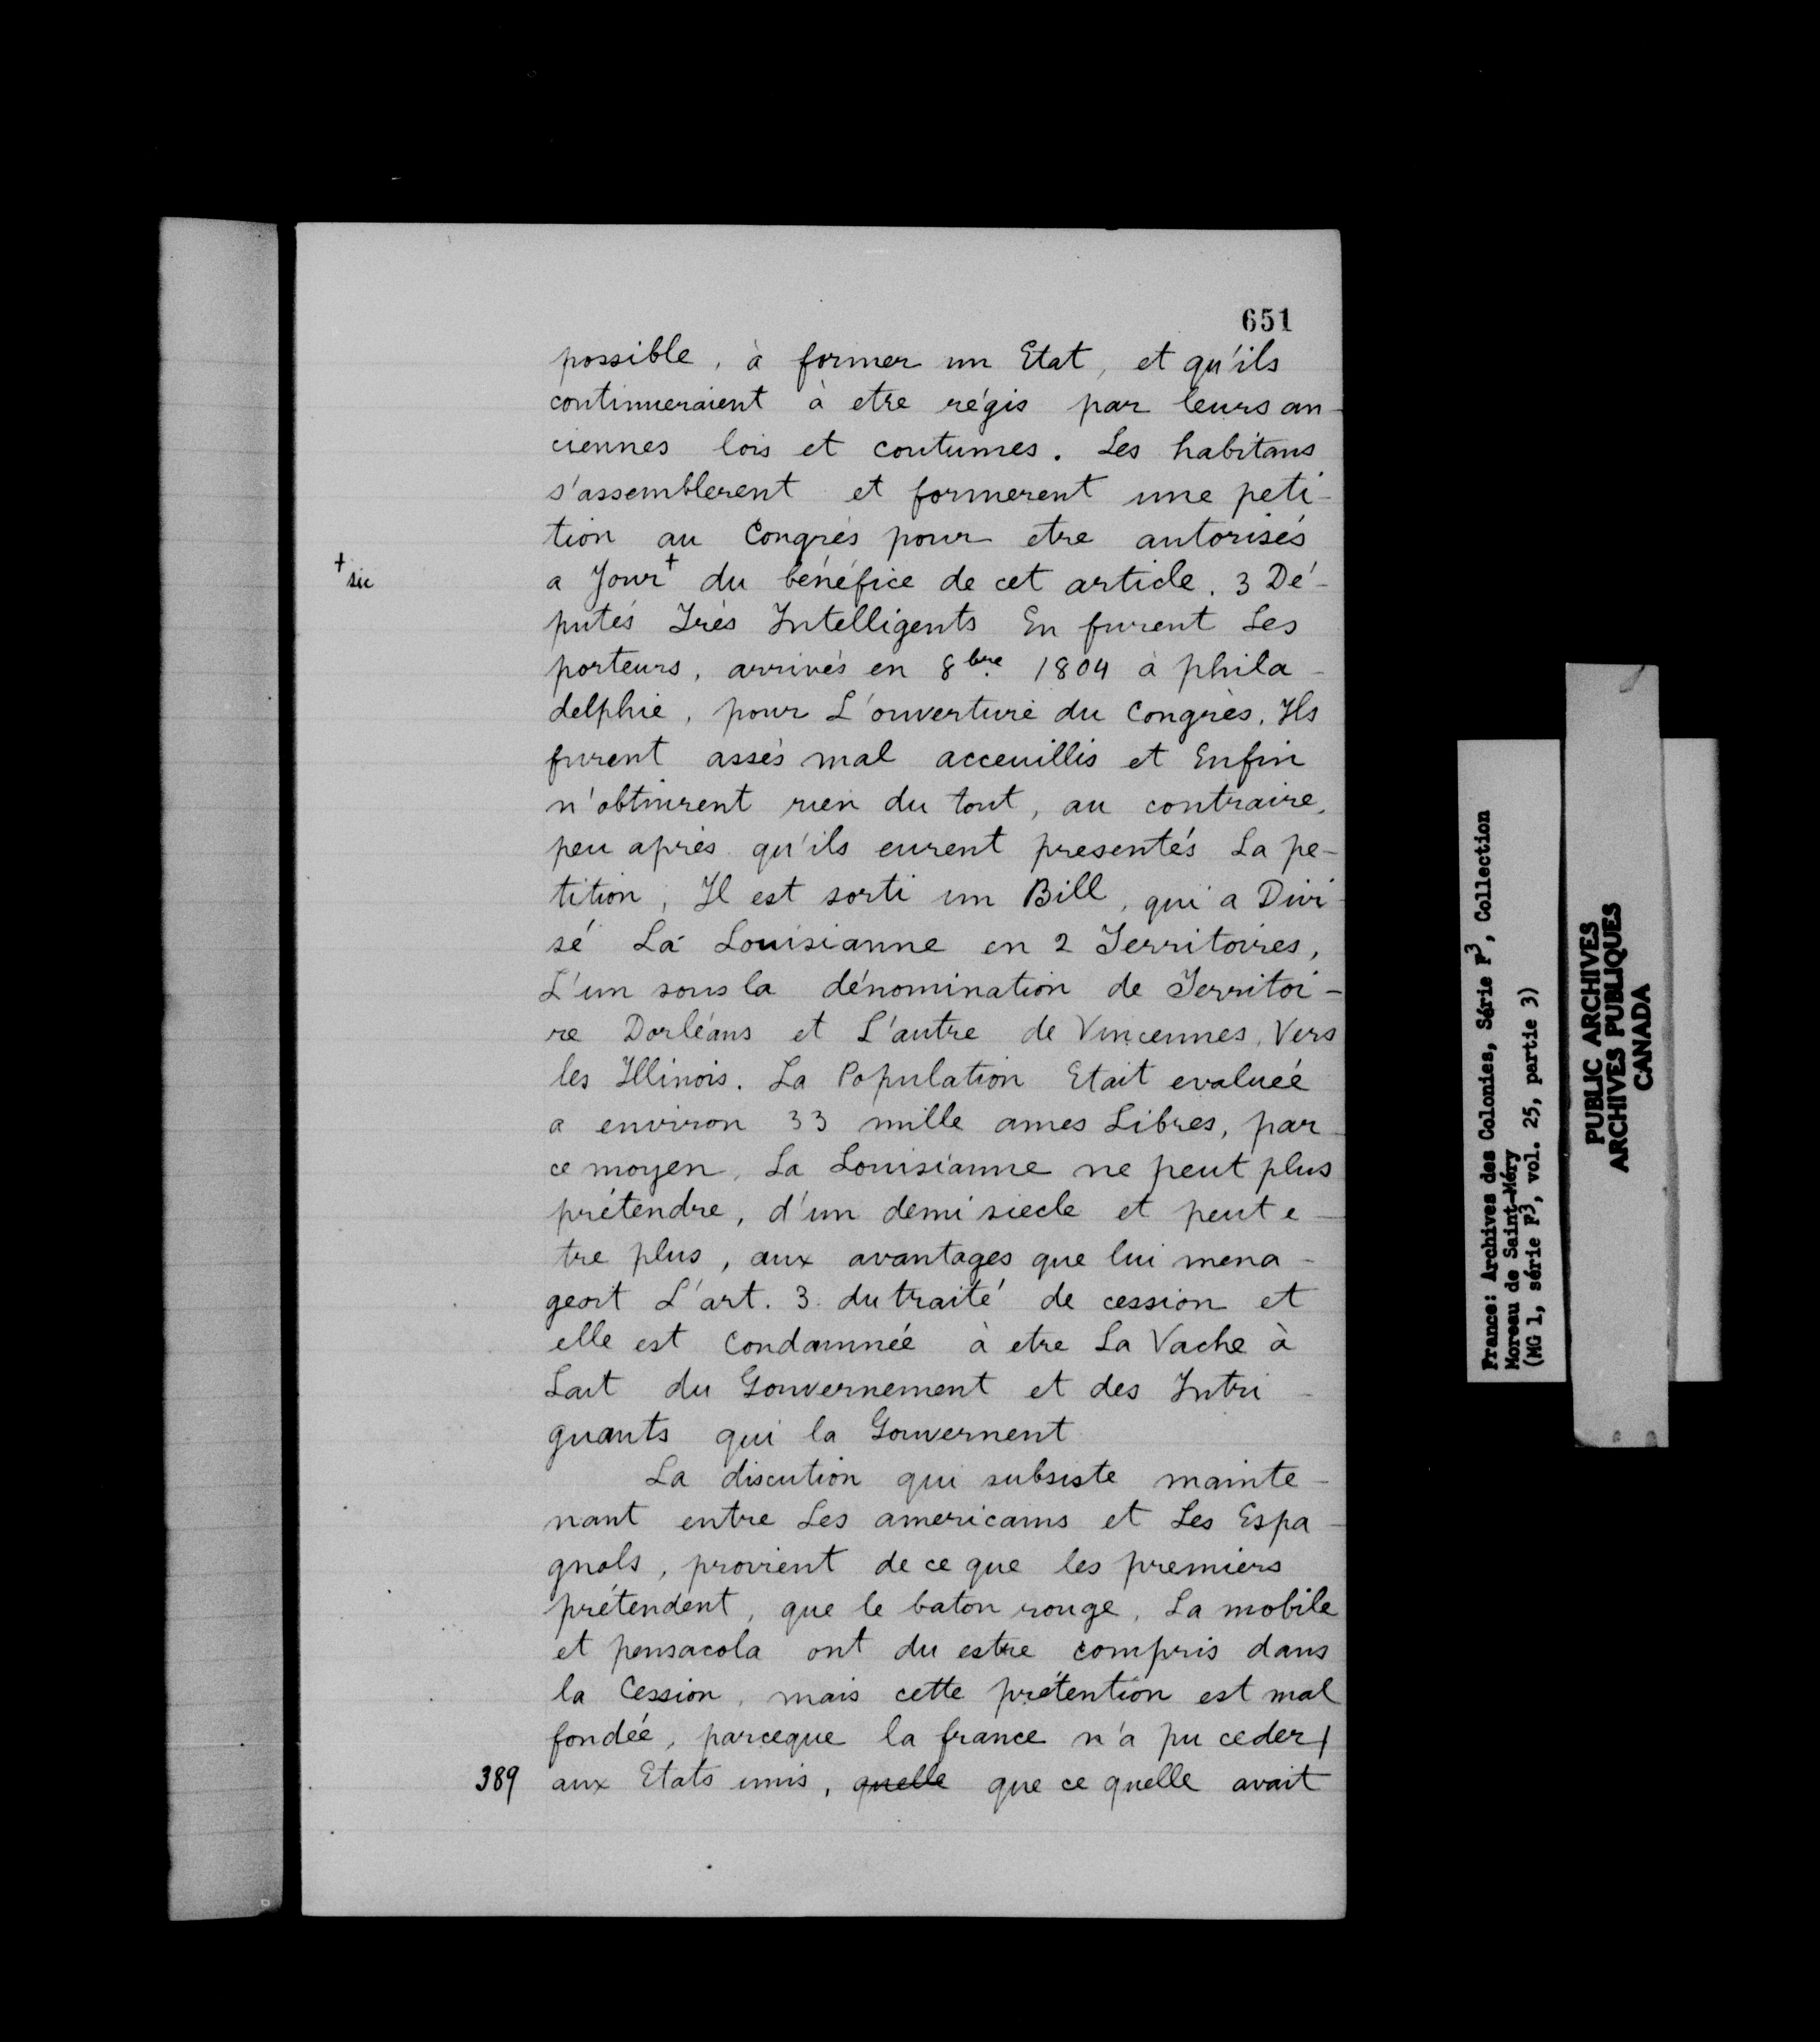 651
possible, à former un Etat, et qu'ils
continueraient à etre régis par leurs an-
ciennes lois et coutumes. Les habitans
s'assemblerent et formerent une peti-
tion au Congrés pour etre autorisés
+ sic
a Jour+ du bénéfice de cet article. 3 Dé-
putés Très Intelligents En furent Les
porteurs, arrivés en 8bre. 1804 à phila-
delphie, pour L'ouverture du Congrès. Ils
furent assés mal acceuillis et Enfin
n'obtinrent rien du tout, au contraire,
peu après qu'ils eurent presentés La pe-
tition, Il est sorti un Bill, qui a Divi-
sé La Louisianne en 2 Territoires,
L'un sous la dénomination de Territoi-
re Dorléans et L'autre de Vincennes, Vers
les Illinois. La Population Etait evaluéé
a environ 33 mille ames Libres, par
ce moyen, La Louisianne ne peut plus
prétendre, d'un demi siecle et peut e-
tre plus, aux avantages que lui mena-
geait L'art. 3. du traité de cession et
elle est Condamnée à etre La Vache à
Lait du Gouvernement et des Intri-
guants qui la Gouvernent
La discution qui subsiste mainte-
nant entre Les americains et Les Espa-
gnols, provient de ce que les premiers
prétendent, que le baton rouge, La mobile
et pensacola ont du estre compris dans
la Cession, mais cette prétention est mal
fondée, parceque la france n'a pu ceder/
389 aux Etats unis, quelle que ce quelle avait
France: Archives des Colonies, Série F3, Collection
Moreau de Saint-Méry
(MG 1, série F3, vol. 25, partie 3)
PUBLIC ARCHIVES
ARCHIVES PUBLIQUES
CANADA